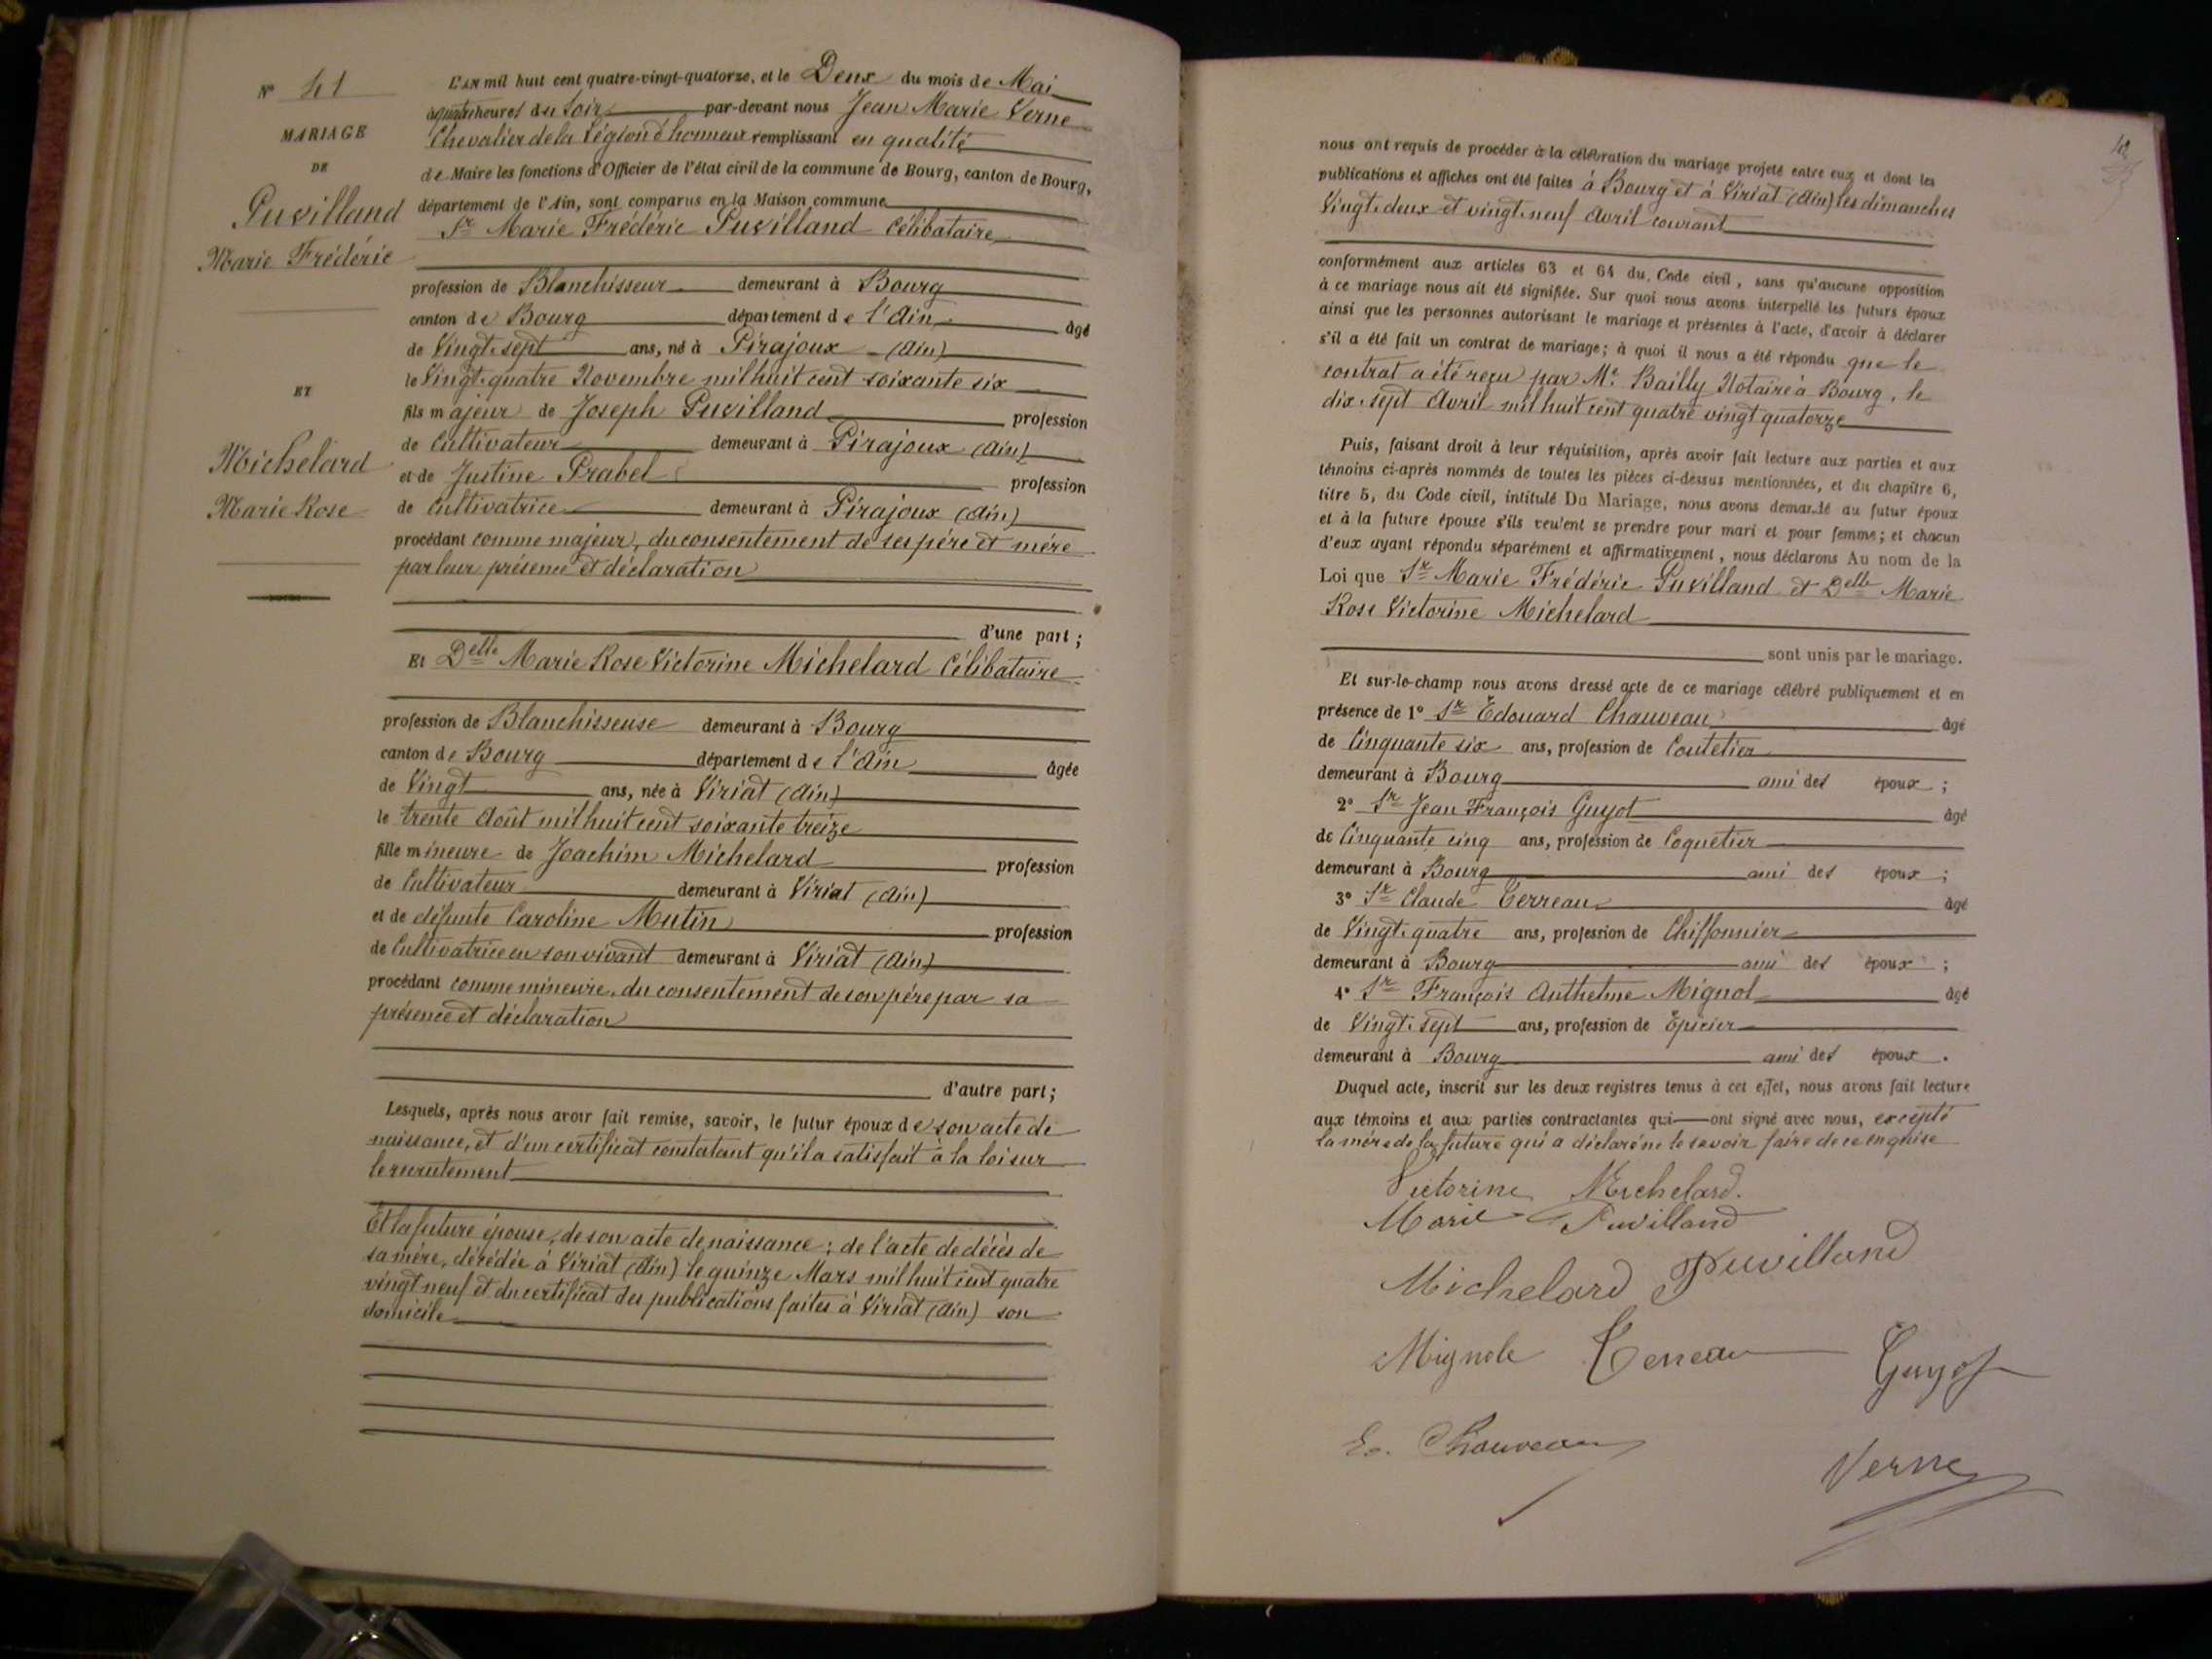 N° 41
MARIAGE
DE
Puvilland
Marie Frédéric
ET
Michelard
Marie Rose
L'AN mil huit cent quatre-vingt-quatorze, et le Deux du mois de Mai
à quatre heures du Soir par-devant nous Jean Marie Verne
Chevalier de la Légion d'honneur remplissant en qualité
de Maire les fonctions d'Officier de l'état civil de la commune de Bourg, canton de Bourg,
département de l'Ain, sont comparus en la Maison commune
Sr Marie Frédéric Puvilland Célibataire
profession de Blanchisseur demeurant à Bourg
canton de Bourg département de l'Ain âgé
de Vingt-sept ans, né à Pirajoux (Ain)
le Vingt-quatre Novembre mil huit cent soixante six
fils majeur de Joseph Puvilland profession
de Cultivateur demeurant à Pirajoux (Ain)
et de Justine Prabel profession
de Cultivatrice demeurant à Pirajoux (Ain)
procédant comme majeur, du consentement de ses père et mère
par leur présence et déclaration
d'une part ;
Et Delle Marie Rose Victorine Michelard Célibataire
profession de Blanchisseuse demeurant à Bourg
canton de Bourg département de l'Ain âgée
de Vingt ans, née à Viriat (Ain)
le trente Août mil huit cent soixante treize
fille mineure de Joachim Michelard profession
de Cultivateur demeurant à Viriat (Ain)
et de défunte Caroline Mutin profession
de Cultivatrice en son vivant demeurant à Viriat (Ain)
procédant comme mineure, du consentement de son père par sa
présence et déclaration
d'autre part ;
Lesquels, après nous avoir fait remise, savoir, le futur époux de son acte de
naissance, et d'un certificat constatant qu'il a satisfait à la loi sur
le recrutement
Et la future épouse, de son acte de naissance ; de l'acte de décès de
sa mère, décédée à Viriat (Ain) le quinze Mars mil huit cent quatre
vingt neuf et du certificat des publications faites à Viriat (Ain) son
domicile
42
nous ont requis de procéder à la célébration du mariage projeté entre eux et dont les
publications et affiches ont été faites à Bourg et à Viriat (Ain) les dimanches
Vingt-deux et vingt-neuf Avril courant
conformément aux articles 63 et 64 du Code civil, sans qu'aucune opposition
à ce mariage nous ait été signifiée. Sur quoi nous avons interpellé les futurs époux
ainsi que les personnes autorisant le mariage et présentes à l'acte, d'avoir à déclarer
s'il a été fait un contrat de mariage ; à quoi il nous a été répondu que le
contrat a été reçu par Me Bailly Notaire à Bourg, le
dix-sept Avril mil huit cent quatre vingt quatorze
Puis, faisant droit à leur réquisition, après avoir fait lecture aux parties et aux
témoins ci-après nommés de toutes les pièces ci-dessus mentionnées, et du chapitre 6,
titre 5, du Code civil, intitulé Du Mariage, nous avons demandé au futur époux
et à la future épouse s'ils veulent se prendre pour mari et pour femme ; et chacun
d'eux ayant répondu séparément et affirmativement, nous déclarons Au nom de la
Loi que Sr Marie Frédéric Puvilland et Delle Marie
Rose Victorine Michelard
sont unis par le mariage.
Et sur-le-champ nous avons dressé acte de ce mariage célébré publiquement et en
présence de 1° Sr Edouard Chauveau âgé
de Cinquante six ans, profession de Coutelier
demeurant à Bourg ami des époux ;
2° Sr Jean François Guyot âgé
de Cinquante cinq ans, profession de Coquetier
demeurant à Bourg ami des époux ;
3° Sr Claude Terreau âgé
de Vingt-quatre ans, profession de Chiffonnier
demeurant à Bourg ami des époux ;
4° Sr François Anthelme Mignot âgé
de Vingt-sept ans, profession de Epicier
demeurant à Bourg ami des époux .
Duquel acte, inscrit sur les deux registres tenus à cet effet, nous avons fait lecture
aux témoins et aux parties contractantes qui ont signé avec nous, excepté
la mère de la future qui a déclaré ne le savoir faire de ce enquise
Victorine Michelard.
Marie Puvilland
Michelard Puvilland
Mignot Terreau Guyot
Ed. Chauveau
Verne